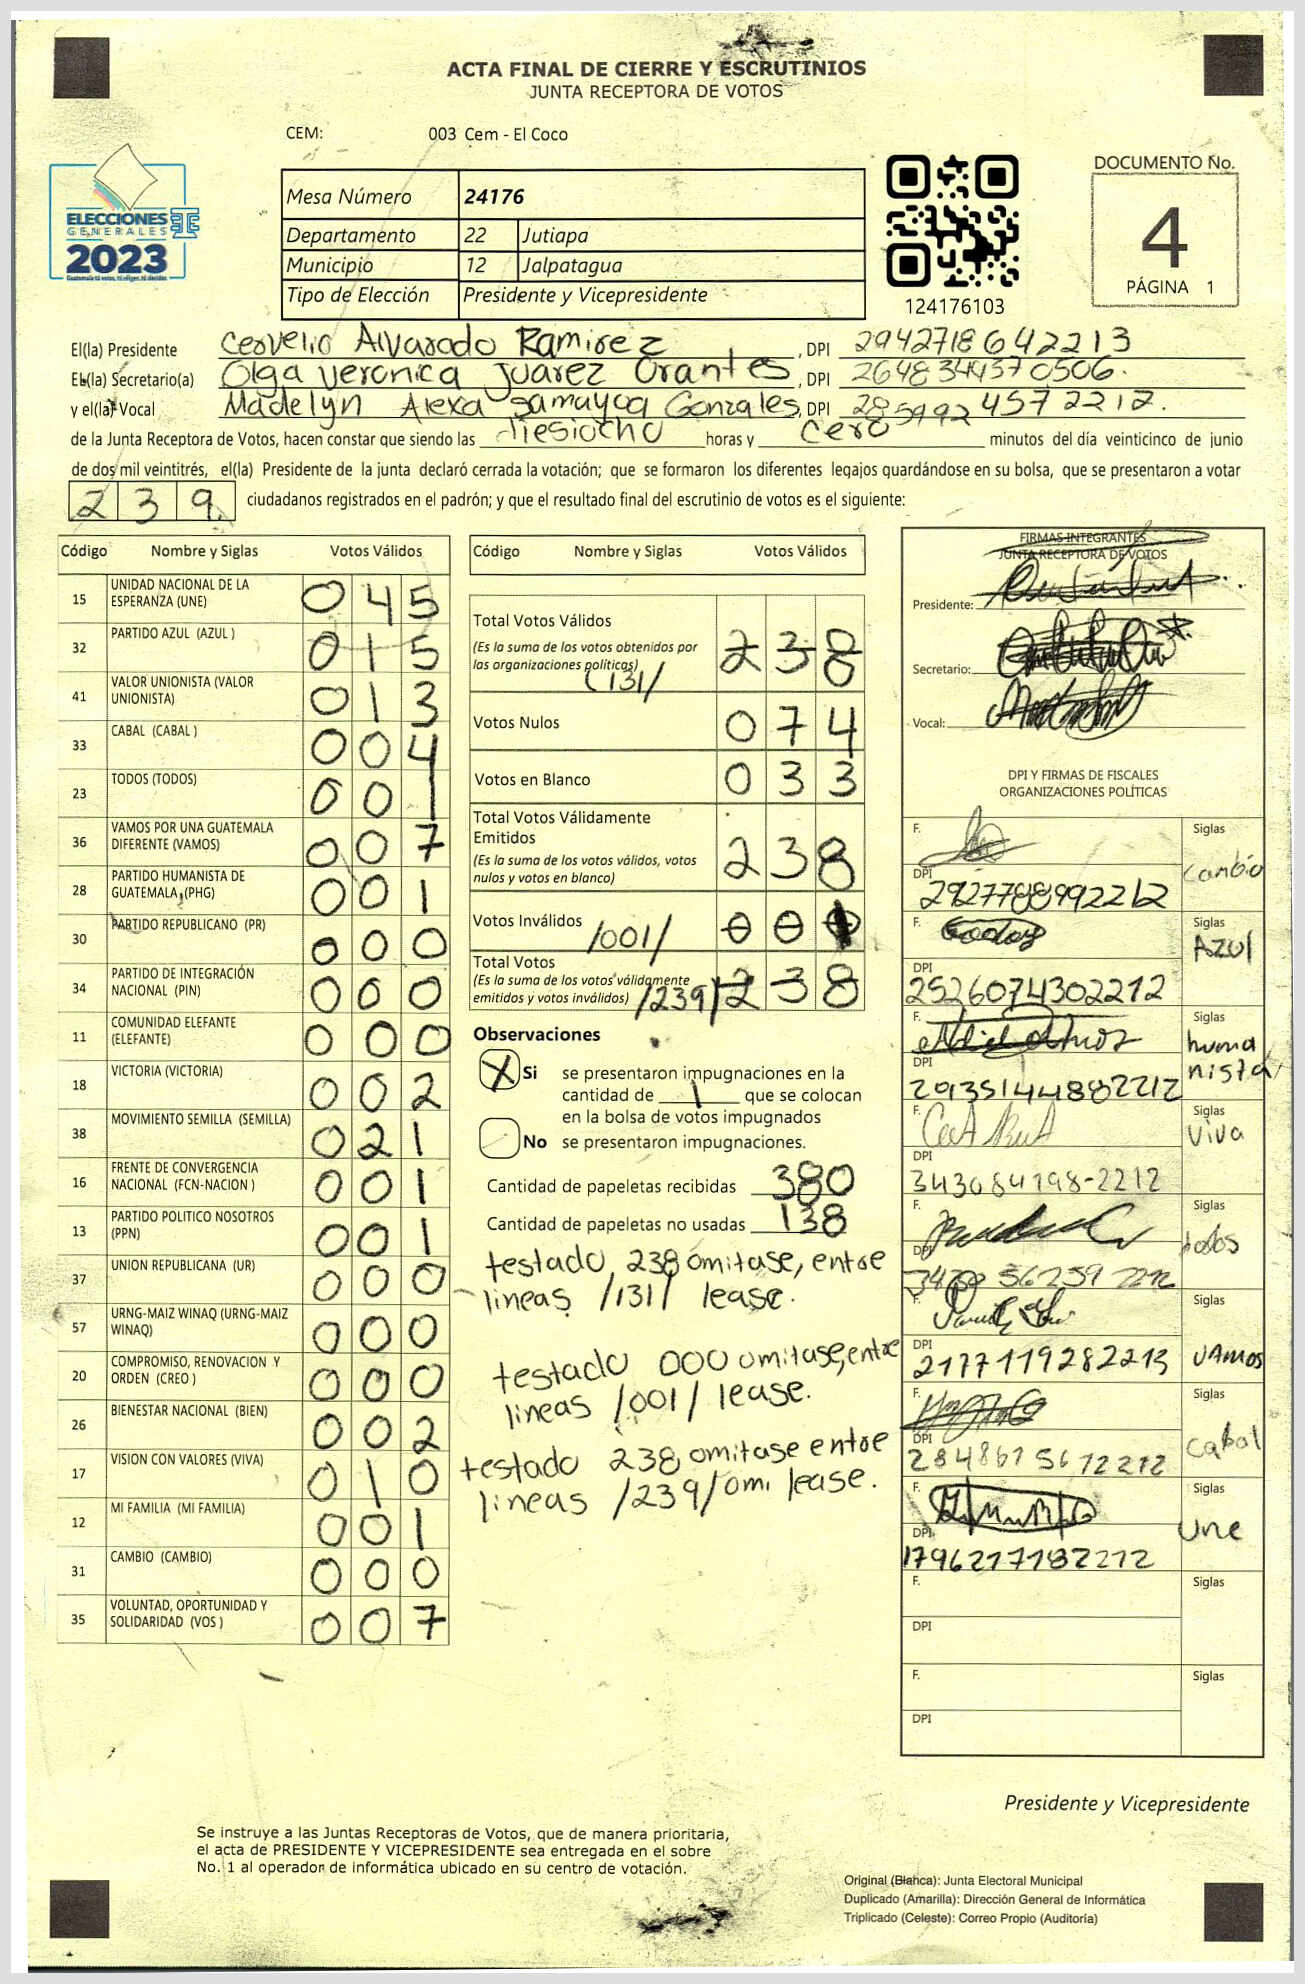 ACTA FINAL DE CIERRE Y ESCRUTINIOS
JUNTA RECEPTORA DE VOTOS
CEM: 003 Cem - El Coco
ELECCIONES
GENERALES
2023
Mesa Número 24176
Departamento 22 Jutiapa
Municipio 12 Jalpatagua
Tipo de Elección Presidente y Vicepresidente
124176103
DOCUMENTO No.
4
PÁGINA 1
El(la) Presidente Cervelio Alvarado Ramirez, DPI 2942718642213
El(la) Secretario(a) Olga veronica Juarez Orantes, DPI 2648344370506.
y el(la) Vocal Madelyn Alexa Samayoa Gonzales, DPI 285992 4572212.
de la Junta Receptora de Votos, hacen constar que siendo las diesiocho horas y cero minutos del día veinticinco de junio
de dos mil veintitrés, el(la) Presidente de la junta declaró cerrada la votación; que se formaron los diferentes legajos guardándose en su bolsa, que se presentaron a votar
239. ciudadanos registrados en el padrón; y que el resultado final del escrutinio de votos es el siguiente:
Código Nombre y Siglas Votos Válidos
15 UNIDAD NACIONAL DE LA ESPERANZA (UNE) 045
32 PARTIDO AZUL (AZUL ) 015
41 VALOR UNIONISTA (VALOR UNIONISTA) 013
33 CABAL (CABAL ) 004
23 TODOS (TODOS) 001
36 VAMOS POR UNA GUATEMALA DIFERENTE (VAMOS) 007
28 PARTIDO HUMANISTA DE GUATEMALA (PHG) 001
30 PARTIDO REPUBLICANO (PR) 000
34 PARTIDO DE INTEGRACIÓN NACIONAL (PIN) 000
11 COMUNIDAD ELEFANTE (ELEFANTE) 000
18 VICTORIA (VICTORIA) 002
38 MOVIMIENTO SEMILLA (SEMILLA) 021
16 FRENTE DE CONVERGENCIA NACIONAL (FCN-NACION ) 001
13 PARTIDO POLITICO NOSOTROS (PPN) 001
37 UNION REPUBLICANA (UR) 000
57 URNG-MAIZ WINAQ (URNG-MAIZ WINAQ) 000
20 COMPROMISO, RENOVACION Y ORDEN (CREO ) 000
26 BIENESTAR NACIONAL (BIEN) 002
17 VISION CON VALORES (VIVA) 010
12 MI FAMILIA (MI FAMILIA) 001
31 CAMBIO (CAMBIO) 000
35 VOLUNTAD, OPORTUNIDAD Y SOLIDARIDAD (VOS ) 007
Código Nombre y Siglas Votos Válidos
Total Votos Válidos 238
(Es la suma de los votos obtenidos por
las organizaciones políticas)
/131/
Votos Nulos 074
Votos en Blanco 033
Total Votos Válidamente
Emitidos 238
(Es la suma de los votos válidos, votos
nulos y votos en blanco)
Votos Inválidos /001/
Total Votos
(Es la suma de los votos válidamente
emitidos y votos inválidos) /239/ 238
Observaciones
X Si se presentaron impugnaciones en la
cantidad de 1 que se colocan
en la bolsa de votos impugnados
No se presentaron impugnaciones.
Cantidad de papeletas recibidas 380
Cantidad de papeletas no usadas 138
testado 238 omitase, entre
lineas /131/ lease.
testado 000 omitase, entre
lineas /001/ lease.
testado 238 omitase entre
lineas /239/ omi lease.
FIRMAS INTEGRANTES
JUNTA RECEPTORA DE VOTOS
Presidente:
Secretario:
Vocal:
DPI Y FIRMAS DE FISCALES
ORGANIZACIONES POLÍTICAS
F. Siglas
cambio
DPI
2927788992212
F. Siglas
Azul
DPI
2526074302212
F. Siglas
humanista
DPI
2935144882212
F. Siglas
viva
DPI
343084198-2212
F. Siglas
todos
DPI
F. Siglas
VAmos
DPI
2177119282213
F. Siglas
cabal
DPI
2848615672212
F. Siglas
une
DPI
1796217182212
F. Siglas
DPI
F. Siglas
DPI
Presidente y Vicepresidente
Se instruye a las Juntas Receptoras de Votos, que de manera prioritaria,
el acta de PRESIDENTE Y VICEPRESIDENTE sea entregada en el sobre
No. 1 al operador de informática ubicado en su centro de votación.
Original (Blanca): Junta Electoral Municipal
Duplicado (Amarilla): Dirección General de Informática
Triplicado (Celeste): Correo Propio (Auditoría)